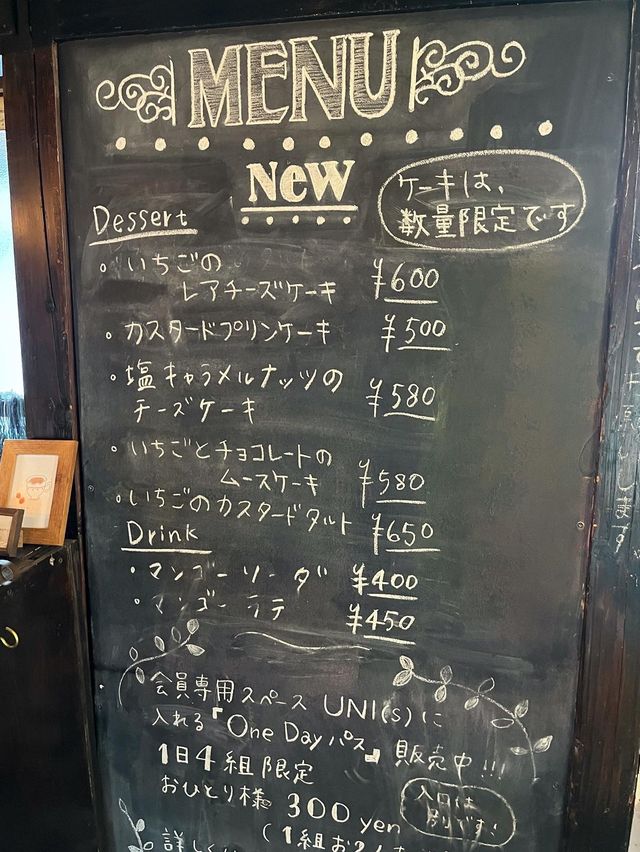 MENU
New
ケーキは、
数量限定です
Dessert
・いちごの
レアチーズケーキ ¥600
・カスタードプリンケーキ ¥500
・塩キャラメルナッツの
チーズケーキ ¥580
・いちごとチョコレートの
ムースケーキ ¥580
・いちごのカスタードタルト ¥650
Drink
・マンゴーソーダ ¥400
・マンゴーラテ ¥450
会員専用スペース UNI(s)に
入れる『One Dayパス』販売中!!!
1日4組限定
おひとり様 300 yen
入口は
別です!
(1組お2人
詳しくは